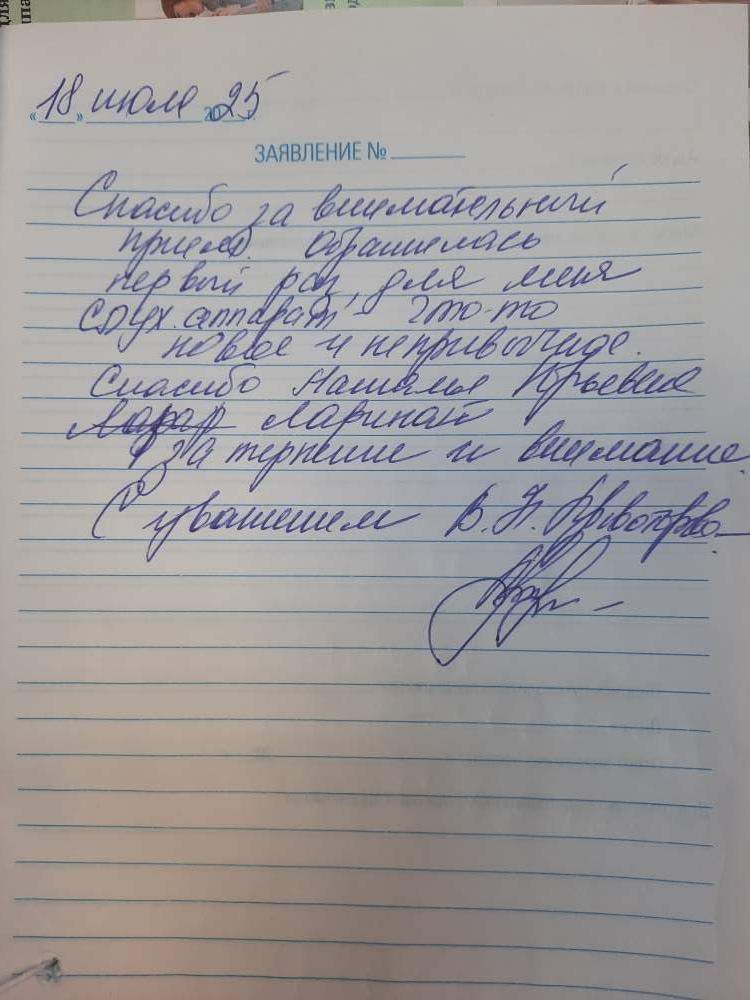 «18» июля 2025
ЗАЯВЛЕНИЕ №
Спасибо за внимательный
прием. Обратилась
первый раз, для меня
слух. аппарат – что-то
новое и непривычное.
Спасибо Наталье Юрьевне
за терпение и внимание.
С уважением В. Н.